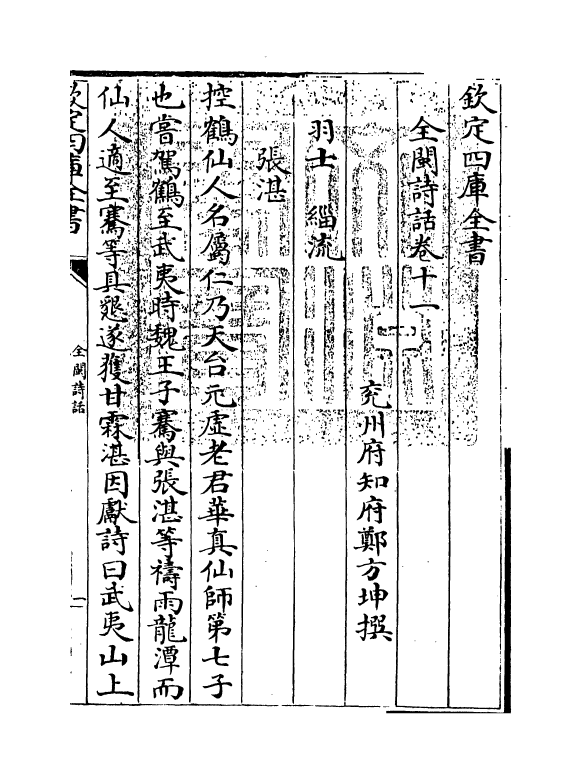 欽定四庫全書
全閩詩話卷十一
兖州府知府鄭方坤撰
羽士 緇流
張湛
控鶴仙人名屬仁乃天台元虛老君華真仙師第七子
也嘗駕鶴至武夷時魏王子騫與張湛等禱雨龍潭而
仙人適至騫等具懇遂獲甘霖湛因獻詩曰武夷山上
欽定四庫全書
全閩詩話
一